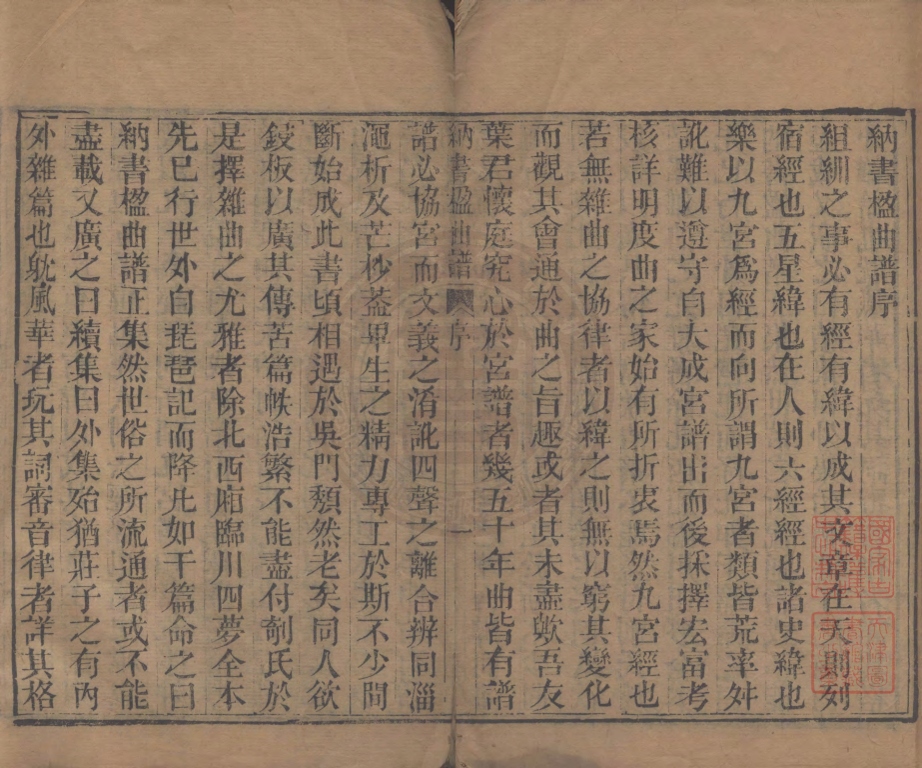 納書楹曲譜序
組綑之事必有經有緯以成其文章在天則列
宿經也五星緯也在人則六經經也諸史緯也
樂以九宮爲經而向所謂九宮者類皆荒率舛
訛難以遵守自大成宮譜出而後採擇宏富考
核詳明度曲之家始有所折衷焉然九宮經也
若無雜曲之協律者以緯之則無以窮其變化
而觀其會通於曲之旨趣或者其未盡歟吾友
葉君懷庭究心於宮譜者幾五十年曲皆有譜
納書楹曲譜 序 一
譜必協宮而文義之淆訛四聲之離合辨同淄
澠析及芒杪葢畢生之精力專工於斯不少間
斷始成此書頃相遇於吳門頽然老矣同人欲
鋟板以廣其傳苦篇帙浩繁不能盡付剞氏於
是擇雜曲之尤雅者除北西廂臨川四夢全本
先已行世外自琵琶記而降凡如干篇命之曰
納書楹曲譜正集然世俗之所流通者或不能
盡載又廣之曰續集曰外集始猶莊子之有內
外雜篇也躭風華者玩其詞審音律者詳其格